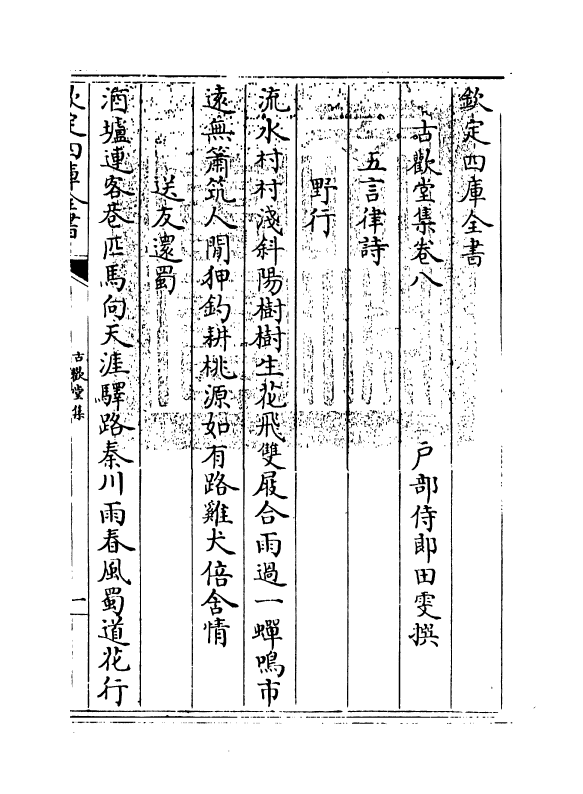 欽定四庫全書
古歡堂集卷八 戶部侍郎田雯撰
五言律詩
野行
流水村村淺斜陽樹樹生花飛雙屐合雨過一蟬鳴市
遠無簫筑人閒狎釣耕桃源如有路雞犬倍含情
送友還蜀
酒壚連客巷匹馬向天涯驛路秦川雨春風蜀道花行
欽定四庫全書 古歡堂集 一